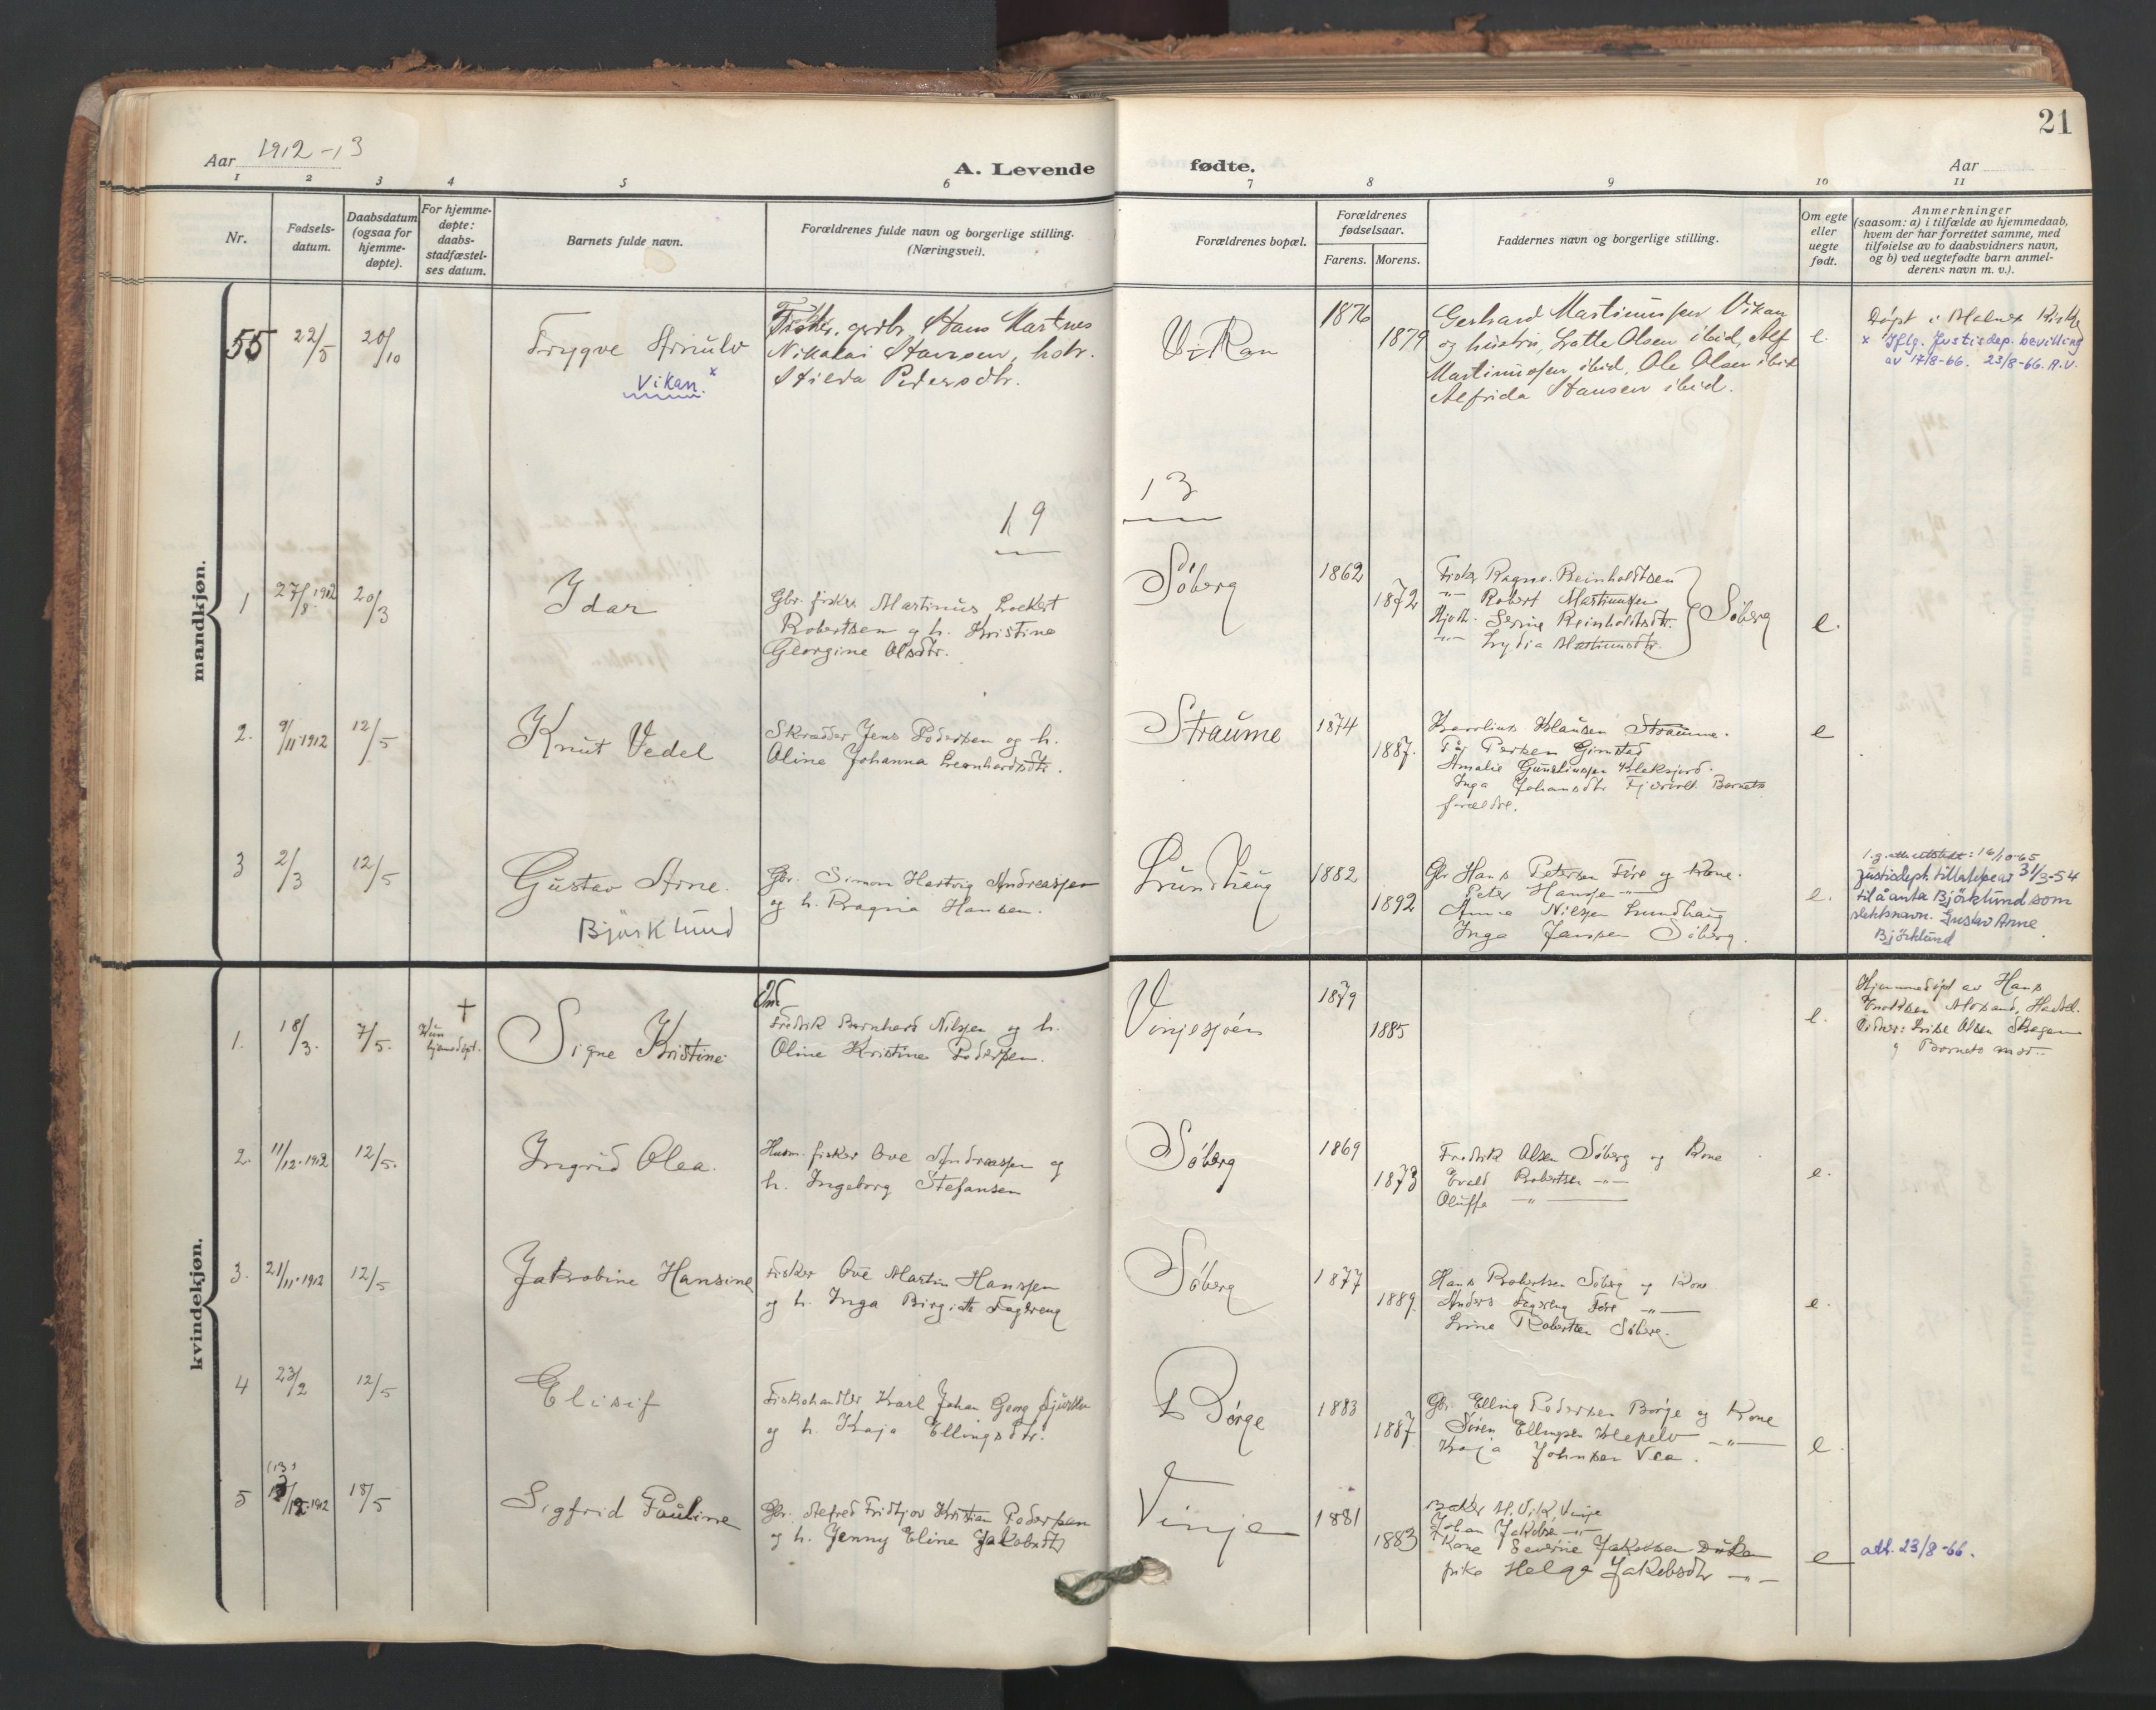 21
Aar 1912-13
A. Levende fødte.
Aar
1 2 3 4 5 6 7 8 9 10 11
Nr.
Fødsels-
datum.
Daabsdatum
(ogsaa for
hjemme-
døpte).
For hjemme-
døpte:
daabs-
stadfæstel-
ses datum.
Barnets fulde navn.
Forældrenes fulde navn og borgerlige stilling.
(Næringsvei).
Forældrenes bopæl.
Forældrenes
fødselsaar.
Farens. Morens.
Faddernes navn og borgerlige stilling.
Om egte
eller
uegte
født.
Anmerkninger
(saasom: a) i tilfælde av hjemmedaab,
hvem der har forrettet samme, med
tilføielse av to daabsvidners navn,
og b) ved uegtefødte barn anmel-
derens navn m. v.).
mandkjøn.
55
22/5
20/10
Trygve Arnulv
Vikan. x
Fisker. grdbr. Hans Martnes
Nikolai Hansen, hstr.
Hilda Pedersdtr.
Vikan
1876
1879
Gerhard Martinussen Vikan
og hustru, Lotte Olsen ibid, Alf
Martinussen ibid, Ole Olsen ibid
Alfrida Hansen ibid.
e.
Døpt i Malnes Kirke
x Iflg. Justisdep. bevilling
av 17/8-66. 23/8-66. A.V.
19 13
1
27/8 1912
20/3
Idar
Gbr. fisker Martinus Lockert
Robertsen og h. Kristine
Georgine Olsdtr.
Søberg
1862
1872
Fisker Ragnv. Reinholdtsen
-"- Robert Martinussen
Serine Reinholdtsdtr.
-"- Lydia Martinusdtr.
Søberg
e.
2.
9/11-1912
12/5
Knut Vedel
Skrædder Jens Pedersen og h.
Oline Johanna Leonhardsdtr.
Straume
1874
1887.
Karolius Klausen Straume.
Per Persen Gimstad
Amalie Gunstinussen
Inga Johansdtr Barnets
forældre.
e
3
2/3
12/5
Gustav Arne.
Björklund
Gbr. Simon Hartvig Andreassen
og h. Ragna Hansen.
Lundhaug
1882
1892
Gbr Hans Petersen Føre og Kone.
Peter Hansen -"-
Anna Nilssen Lundhaug
Inga Jansen Søberg.
e.
1.g. att. utstedt: 16/10-65
Justisdept. tillatelse av 31/3-54
til å anta Björklund som
slektsnavn. Gustav Arne
Björklund
kvindekjøn.
1.
18/3.
7/5.
†
Kun
hjemdøpt.
Signe Kristine
Fredrik Bernhard Nilssen og h.
Oline Kristine Pedersen.
Vinjesjøen
1879
1885
e.
Hjemmedøpt av Hans
Enoksen Hadsel.
Vidner: Lrise Olsen Skagen
og Barnets mor.
2.
11/12-1912
12/5.
Ingrid Olea.
Husm. fisker Ove Andreassen og
h. Ingeborg Stefansen
Søberg
1869
1873
Fredrik Olsen Søberg og Kone
Evald Robertsen -"-
Oluffa -"-
e.
3.
21/11-1912
12/5
Jakobine Hansine
Fisker Ove Martin Hanssen
og h. Inga Birgitte Fagereng
Søberg
1877
1889.
Hans Robertsen Søberg og Kone
Anders Fagereng Føre -"-
Line Robertsen Søberg.
e.
4
23/2
12/5
Elisif
Fiskehandler Karl Johan Georg
og h. Kaja Ellingsdtr.
Børge
1883
1887
Gbr. Elling Pedersen Børge og Kone
Søren Ellingsen Klepelv -"-
Kaja Johnsen Vea.
e.
5
(13)
13/12-1912
18/5
Sigfrid Pauline
Gbr. Alfred Fridtjov Kristian Pedersen
og h. Jenny Eline Jakobsdtr
Vinje
1881
1883
M. Vik, Vinje
Johan Jakobsen -"-
Kone Severine Jakobsen
pike Helga Jakobsdtr -"-
e
att. 23/8-66.